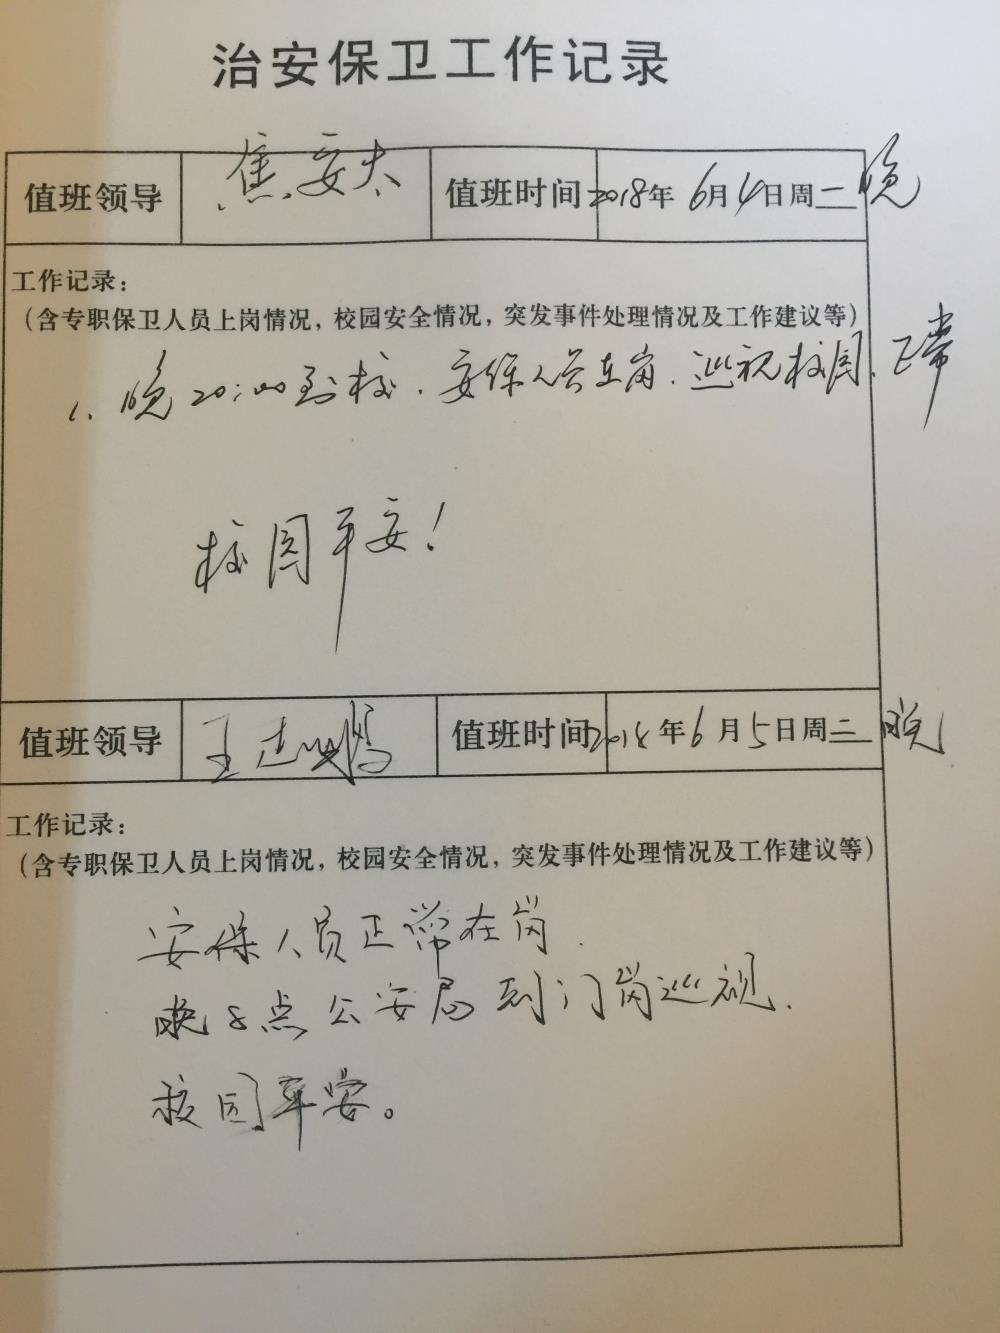 治安保卫工作记录
值班领导 焦安太 值班时间 2018年 6月4日周一 晚
工作记录：
（含专职保卫人员上岗情况，校园安全情况，突发事件处理情况及工作建议等）
1、晚20:00到校，安保人员在岗，巡视校园，正常
校园平安！
值班领导 王 值班时间 2018年6月5日周二 晚
工作记录：
（含专职保卫人员上岗情况，校园安全情况，突发事件处理情况及工作建议等）
安保人员正常在岗.
晚8点公安局到门岗巡视.
校园平安。